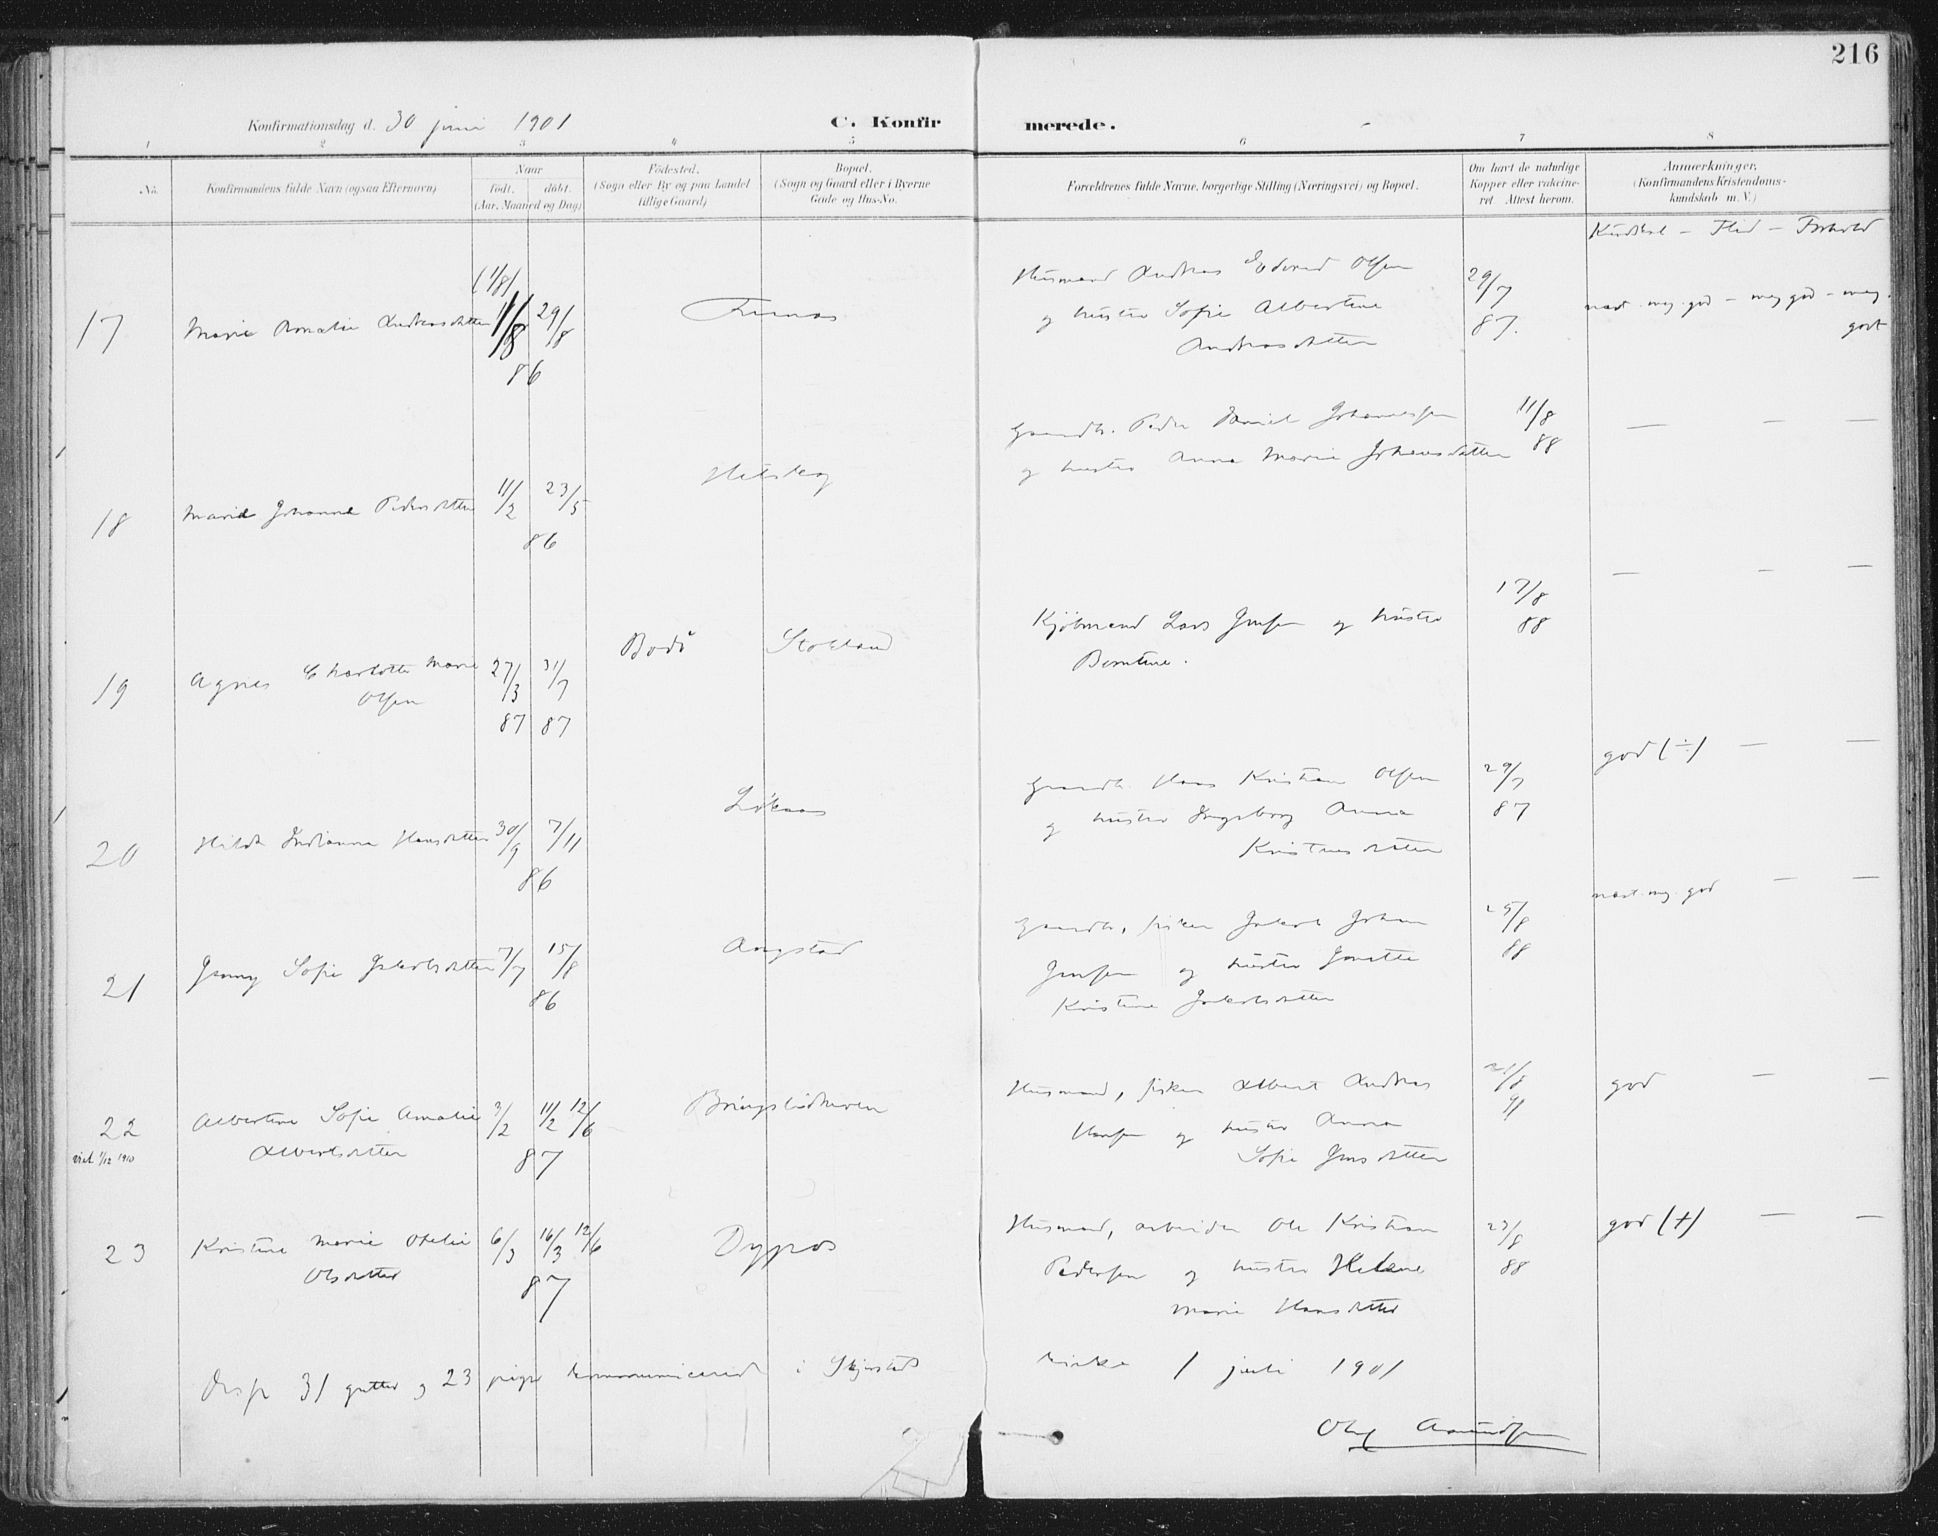 216
Konfirmationsdag d. 30 juni 1901
C. Konfirmerede.
1 2 3 4 5 6 7 8
No.
Konfirmandens fulde Navn (ogsaa Efternavn)
Naar
født. døbt.
(Aar, Maaned og Dag)
Fødested.
(Sogn eller By og paa Landet
tillige Gaard)
Bopæl.
(Sogn og Gaard eller i Byerne
Gade og Hus-No.
Forældrenes fulde Navne, borgerlige Stilling (Næringsvei) og Bopæl.
Om havt de naturlige
Kopper eller vakcine-
ret. Attest herom.
Anmærkninger.
(Konfirmandens Kristendoms-
kundskab m. V.)
Kundskab – Flid – Forhold
17 Marie Amalie Andreasdatter (1/8) 11/8 29/8
86
Husmand Andreas Edvard Olsen
og hustru Sofie Albertine
Andreasdatter
29/7
87.
næst. meg. god – meg god – meg.
godt
18 Marie Johanne Pedersdatter 11/2 23/5
86
Gaardb. Peder Daniel Johannessen
og hustru Anna Marie Johansdatter
11/8
88
— — —
19 Agnes Charlotte Marie
Olsen
27/3 31/7
87 87
Bodø Stokland
Kjøbmand Lars Jensen og hustru
Berntine.
17/8
88
— — —
20 Hilda Indianna Hansdatter 30/9 7/11
86
Løkaas
Gaardb. Hans Kristian Olsen
og hustru Ingeborg Anna
Kristinesdatter
29/7
87
god (÷) — —
21 Jenny Sofie Jakobsdatter 7/7 15/8
86
Angstad
Gaardb., fisker Jakob Johan
Jensen og hustru Janette
Kristine Jakobsdatter
25/8
88
næst. meg. god — —
22 Albertine Sofie Amalie
Albertsdatter
viet 1/12 1910
3/2 11/2 12/6
87
Husmand, fisker Albert Andreas
Hansen og hustru Anna
Sofie Jensdatter
21/8
91
god — —
23 Kristine Marie Otelie
Olsdatter
6/3 16/3 12/6
87
Dypos
Husmand, arbeider Ole Kristian
Pedersen og hustru Helene
Marie Hansdatter
23/8
88
god (+) — —
31 gutter og 23 piger kommunicered i Skjerstad kirke 1 juli 1901
Olaf Amundsen